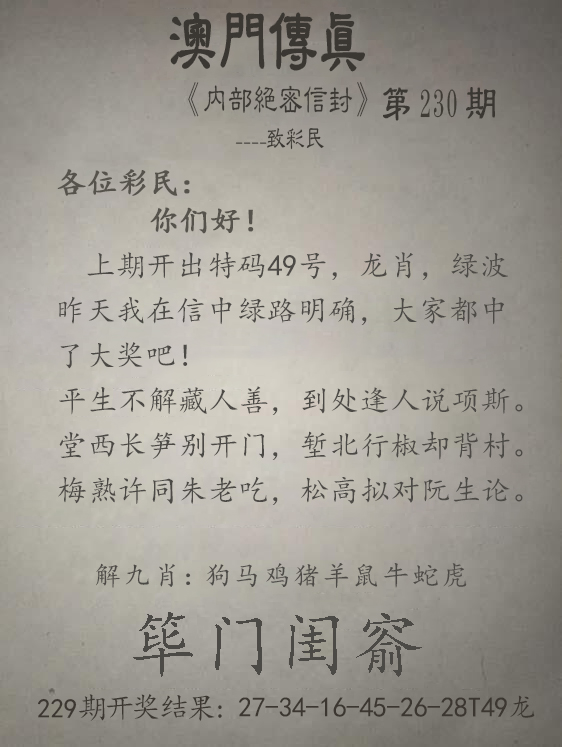 澳門傳真
《内部絕密信封》第230期
----致彩民
各位彩民：
你们好！
上期开出特码49号，龙肖，绿波
昨天我在信中绿路明确，大家都中
了大奖吧！
平生不解藏人善，到处逢人说项斯。
堂西长笋别开门，堑北行椒却背村。
梅熟许同朱老吃，松高拟对阮生论。
解九肖：狗马鸡猪羊鼠牛蛇虎
筚门闺窬
229期开奖结果：27-34-16-45-26-28T49龙